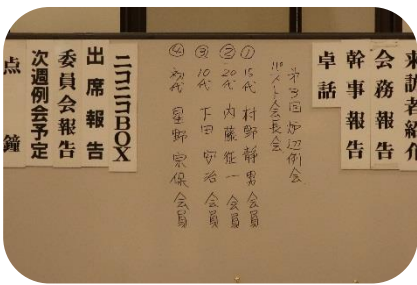 来訪者紹介
会務報告
幹事報告
卓話
第3回炉辺例会
① 15代 村野静男会員
② 20代 内藤征一会員
③ 10代 下田安治会員
④ 初代 星野宗保会員
ニコニコBOX
出席報告
委員会報告
次週例会予定
点鐘